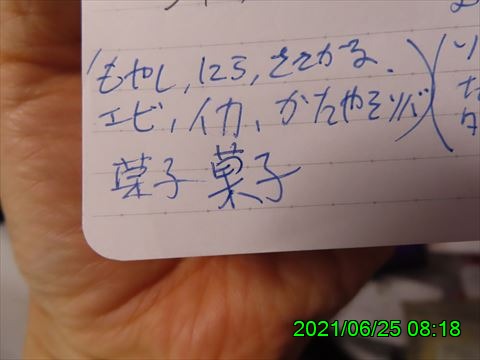 (もやし, にら,
エビ, イカ, かたやきソバ)
菓子 菓子
2021/06/25 08:18